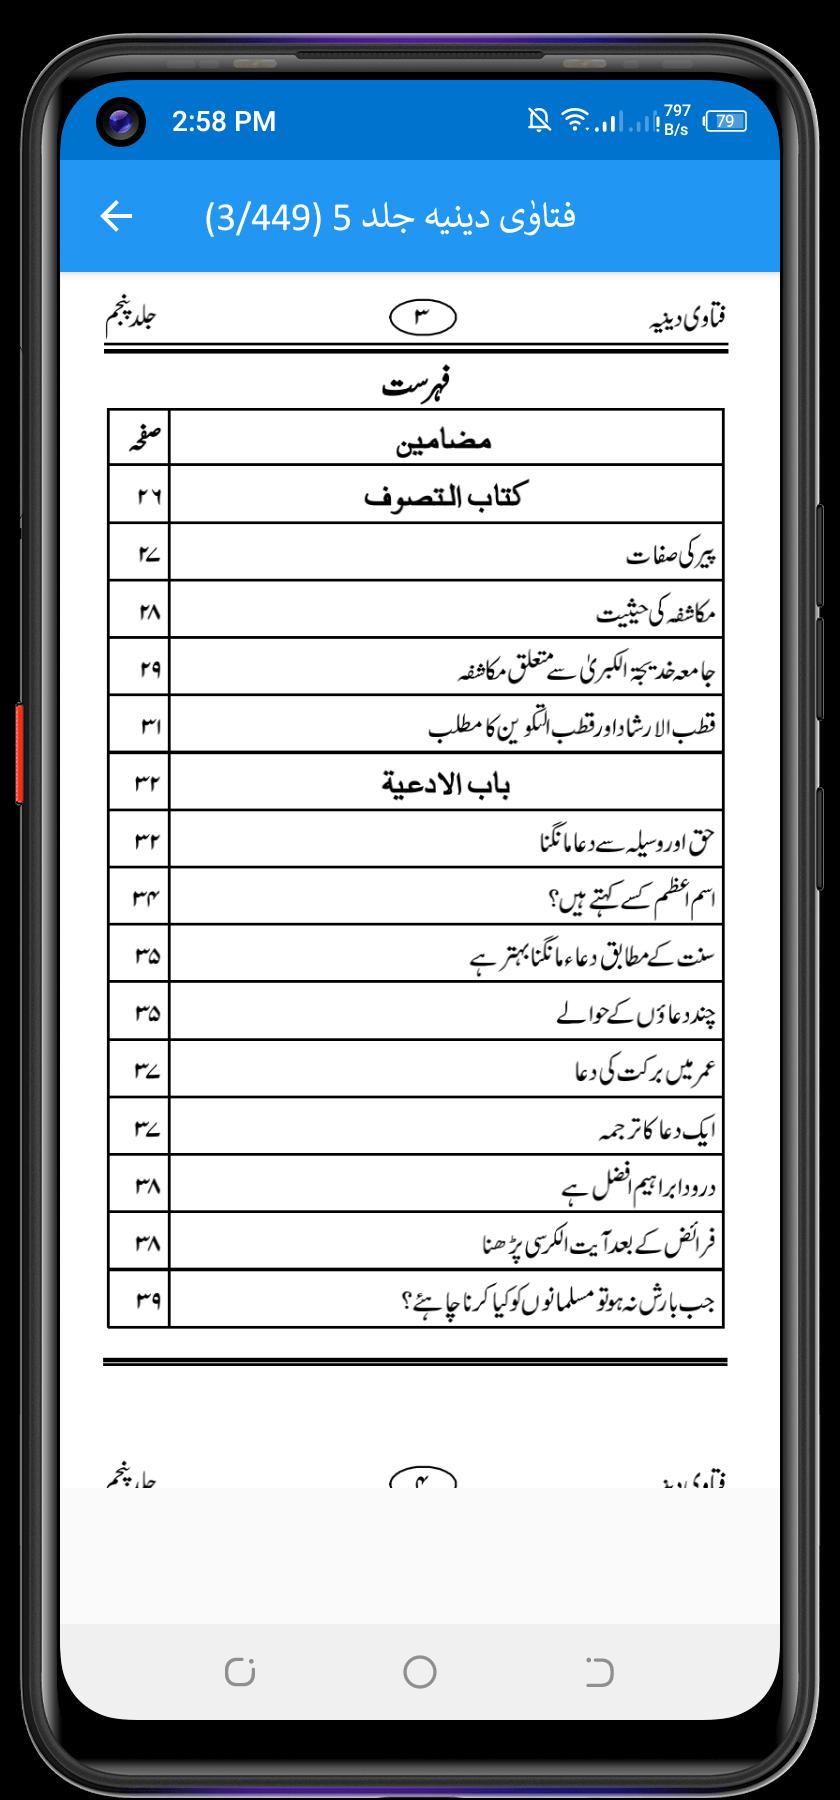 2:58 PM
797 B/s
79
فتاوٰی دینیه جلد 5 (3/449)
فتاوی دینیہ ۳ جلد پنجم
فہرست
مضامین صفحہ
كتاب التصوف ۲۶
پیر کی صفات ۲۷
مکاشفہ کی حیثیت ۲۸
جامعہ خدیجۃ الکبریٰ سے متعلق مکاشفہ ۲۹
قطب الارشاد اور قطب التکوین کا مطلب ۳۱
باب الادعية ۳۲
حق اور وسیلہ سے دعا مانگنا ۳۲
اسم اعظم کسے کہتے ہیں؟ ۳۴
سنت کے مطابق دعاء مانگنا بہتر ہے ۳۵
چند دعاؤں کے حوالے ۳۵
عمر میں برکت کی دعا ۳۷
ایک دعا کا ترجمہ ۳۷
درود ابراہیم افضل ہے ۳۸
فرائض کے بعد آیت الکرسی پڑھنا ۳۸
جب بارش نہ ہو تو مسلمانوں کو کیا کرنا چاہئے؟ ۳۹
فتاوی دینیہ ۴ جلد پنجم